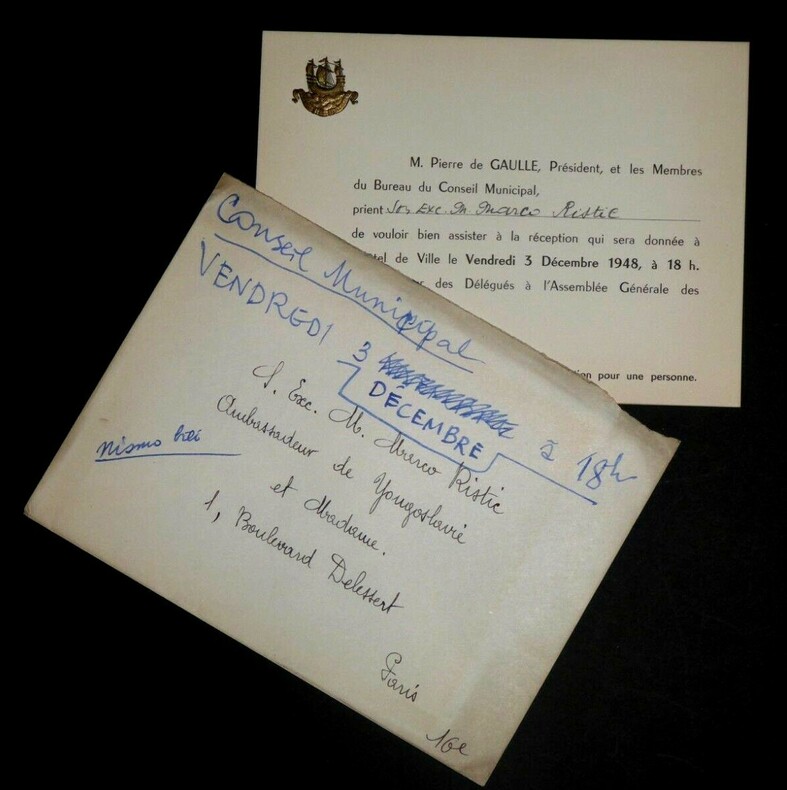 M. Pierre de GAULLE, Président, et les Membres
du Bureau du Conseil Municipal,
prient Son Exc. M. Marco Ristic
de vouloir bien assister à la réception qui sera donnée à
tel de Ville le Vendredi 3 Décembre 1948, à 18 h.
des Délégués à l'Assemblée Générale des
pour une personne.
Conseil Municipal
VENDREDI 3
DÉCEMBRE à 18h
S. Exc. M. Marco Ristic
Ambassadeur de Yougoslavie
et Madame.
nismo
1, Boulevard Delessert
Paris
16e